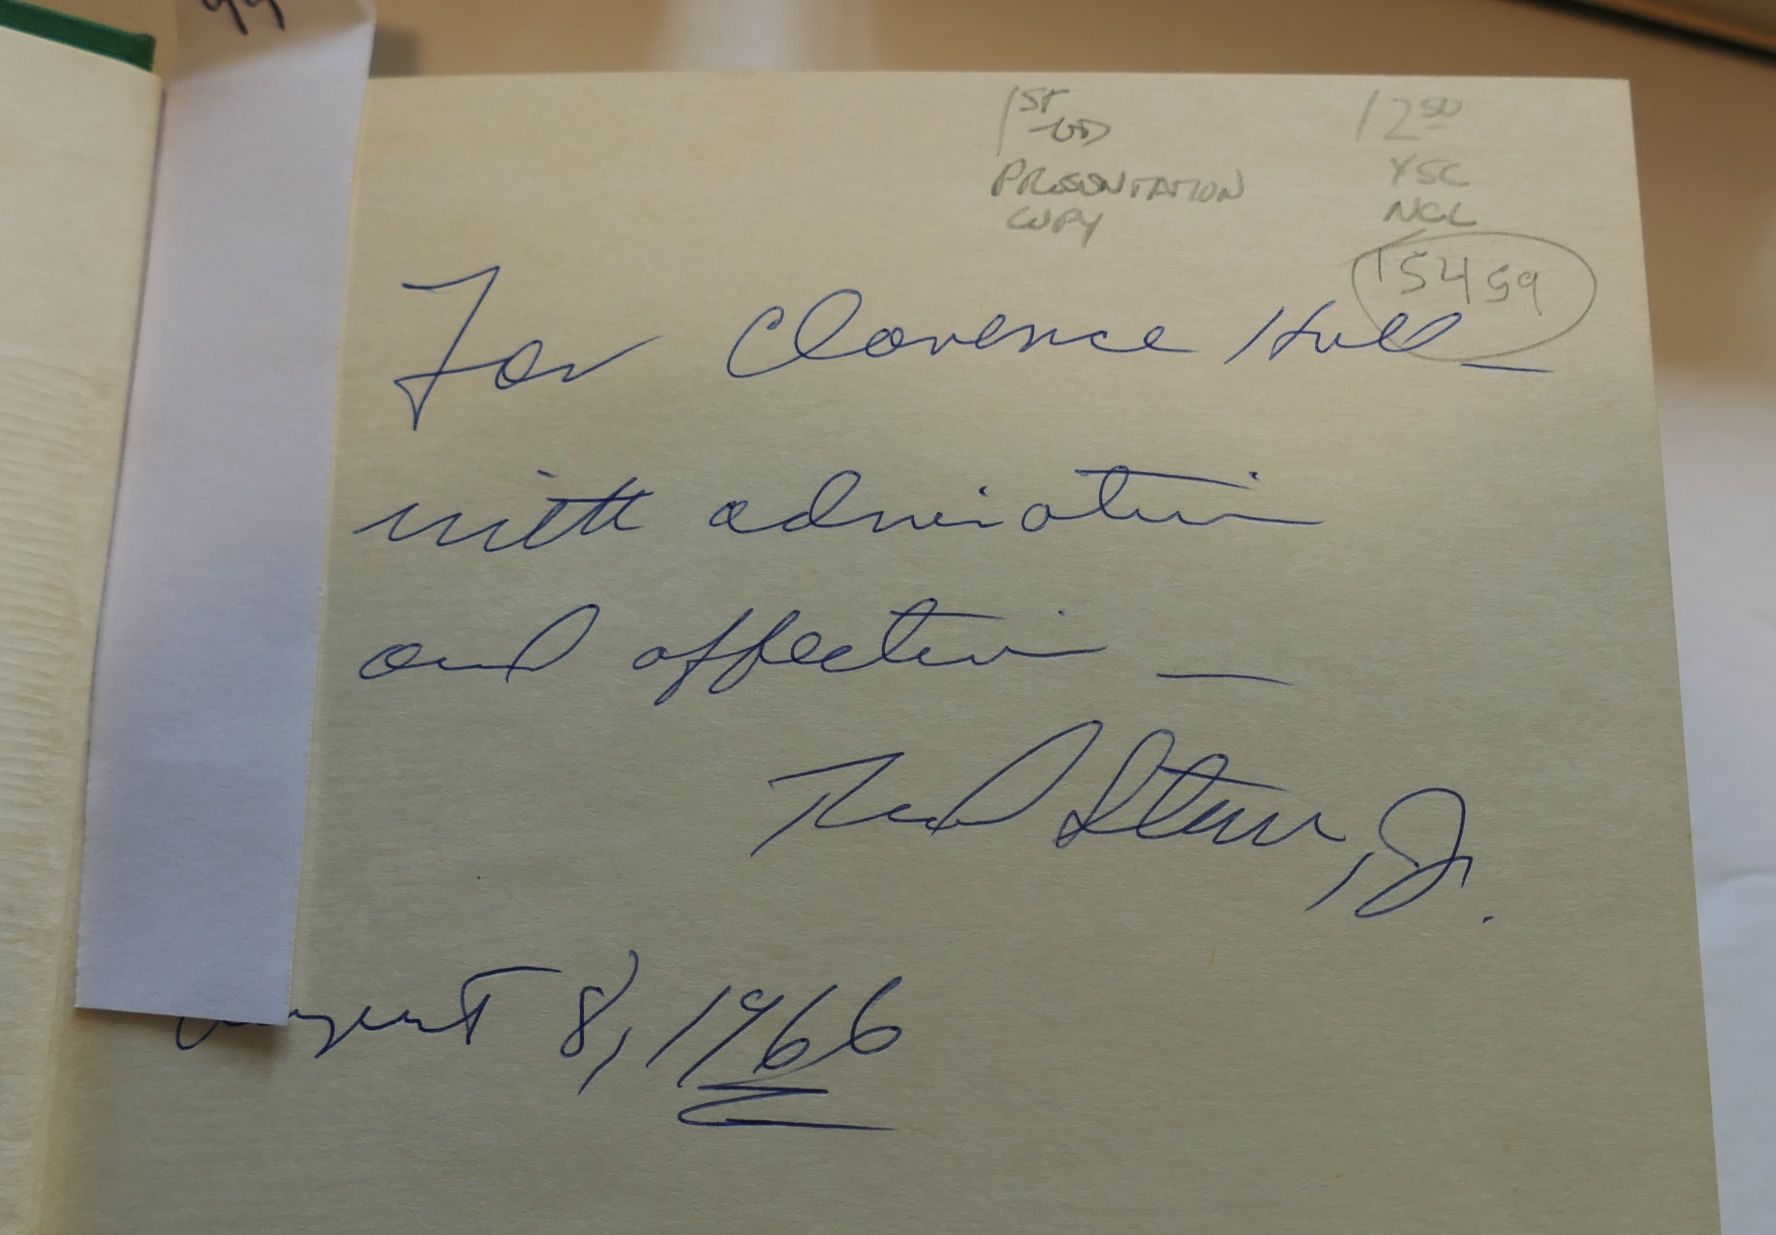 99
1ST
PRESENTATION
COPY
12 50
YSC
NCL
15459
For Clarence Hull
with admiration
and affection —
Jr.
August 8, 1966